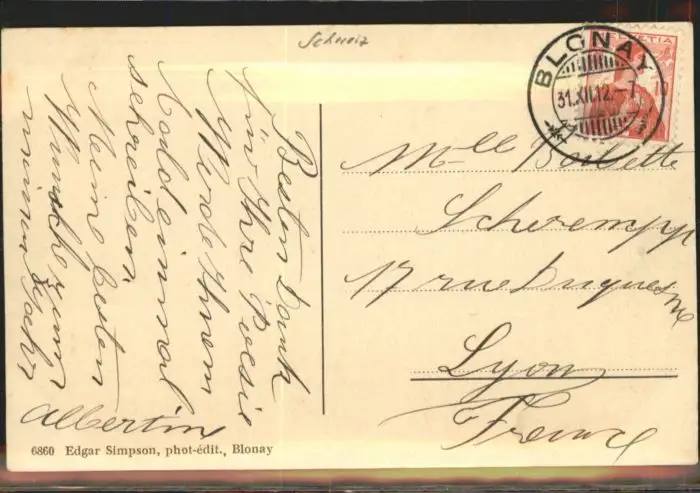 Schweiz
HELVETIA
BLONAY
31.XII.12.-7
Besten Dank
für Ihre Poesie
Werde Ihnen
bald einmal
schreiben.
Meine besten
Wünsche zum
neuen Jahr
Albertin
Mlle
Schrempp
17 rue Duquesne
Lyon
France
6860 Edgar Simpson, phot-édit., Blonay